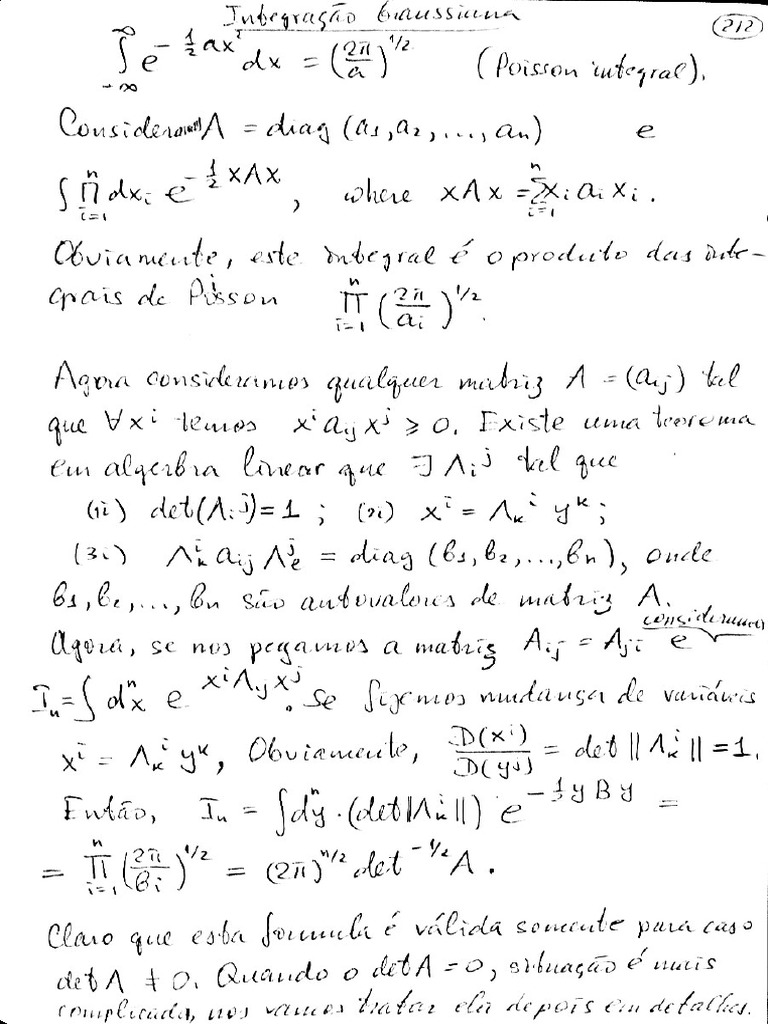 Integração Gaussiana
212
∫_{-∞}^{∞} e^{-½ax²} dx = (2π/a)^{1/2} (Poisson integral).
Consideramos A = diag (a₁, a₂, ..., aₙ) e
∫ ∏_{i=1}^{n} dxᵢ e^{-½ xAx}, where xAx = Σ_{i=1}^{n} xᵢ aᵢ xᵢ.
Obviamente, este integral é o produto das inte-
grais de Poisson ∏_{i=1}^{n} (2π/aᵢ)^{1/2}.
Agora consideramos qualquer matriz A = (aᵢⱼ) tal
que ∀xⁱ temos xⁱ aᵢⱼ xʲ ⩾ 0. Existe uma teorema
em algebra linear que ∃ Λᵢʲ tal que
(1i) det(Λᵢʲ) = 1 ; (2i) xⁱ = Λₖⁱ yᵏ ;
(3i) Λₖⁱ aᵢⱼ Λₑʲ = diag (b₁, b₂, ..., bₙ), onde
b₁, b₂, ..., bₙ são autovalores de matriz A.
Agora, se nos pegamos a matriz Aᵢⱼ = Aⱼᵢ e consideramos
Iₙ = ∫ dⁿx e^{xⁱAᵢⱼxʲ}. se fizemos mudança de variáveis
xⁱ = Λₖⁱ yᵏ, Obviamente, D(xⁱ)/D(yʲ) = det ‖Λₖⁱ‖ = 1.
Então, Iₙ = ∫ dⁿy · (det‖Λₖⁱ‖) e^{-½ y B y} =
= ∏_{i=1}^{n} (2π/bᵢ)^{1/2} = (2π)^{n/2} det^{-1/2} A.
Claro que esta formula é válida somente para caso
det A ≠ 0. Quando o det A = 0, situação é mais
complicada, nos vamos tratar ela depois em detalhes.